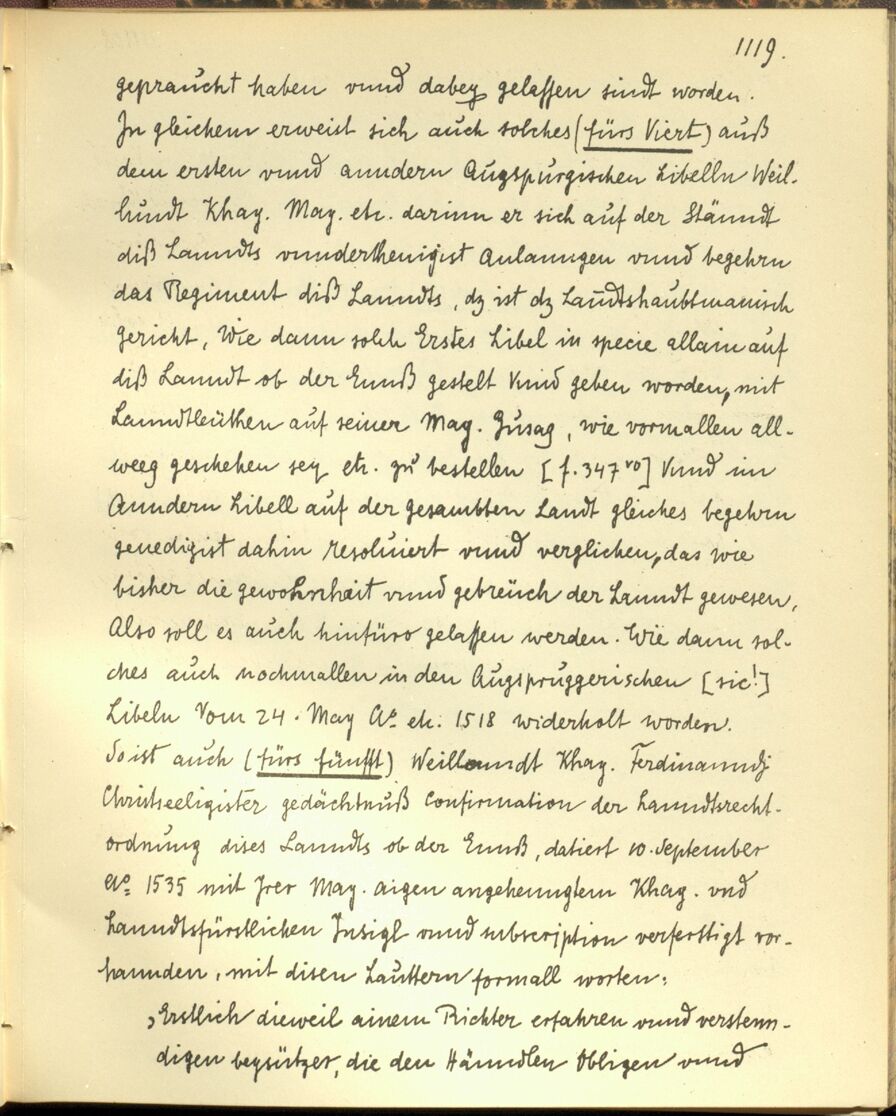 1119.
gepraucht haben vnnd dabey gelassen sindt worden.
In gleichem erweist sich auch solches (fürs Viert) auß
dem ersten vnnd anndern Augspurgischen Libelln Weil-
lundt Khay. May. etc. darinn er sich auf der Stänndt
diß Lanndts vnnderthenigist Anlanngen vnnd begehrn
das Regiment diß Lanndts, dz ist dz Landtshaubtmanisch
gericht, Wie dann solch Erstes Libel in specie allain auf
diß Lanndt ob der Ennß gestelt Vnnd geben worden, mit
Lanndtleüthen auf seiner May. Zusag, wie vormallen all-
weeg geschehen sey etc. zu bestellen [f. 347 vo] Vnnd im
Anndern Libell auf der gesambten Landt gleiches begehrn
genedigist dahin resoluiert vnnd verglichen, das wie
bisher die gewohnhait vnnd gebreüch der Lanndt gewesen,
Also soll es auch hinfüro gelassen werden. Wie dann sol-
ches auch nochmallen in den Augspruggerischen [sic!]
Libeln Vom 24. May Ao. etc. 1518 widerholt worden.
So ist auch (fürs fünfft) Weillanndt Khay. Ferdinanndj
Christseeligister gedächtnuß Confirmation der Lanndtsrecht-
ordnung dises Lanndts ob der Ennß, datiert 10. September
Ao. 1535 mit Irer May. aigen angehenngtem Khay. vnd
Lanndtsfürstlichen Insigl vnnd subscription verferttigt vor-
hannden, mit disen Lauttern formall worten:
„Erstlich dieweil ainem Richter erfahren vnnd verstenn-
digen beysützer, die den Hänndlen Obligen vnnd